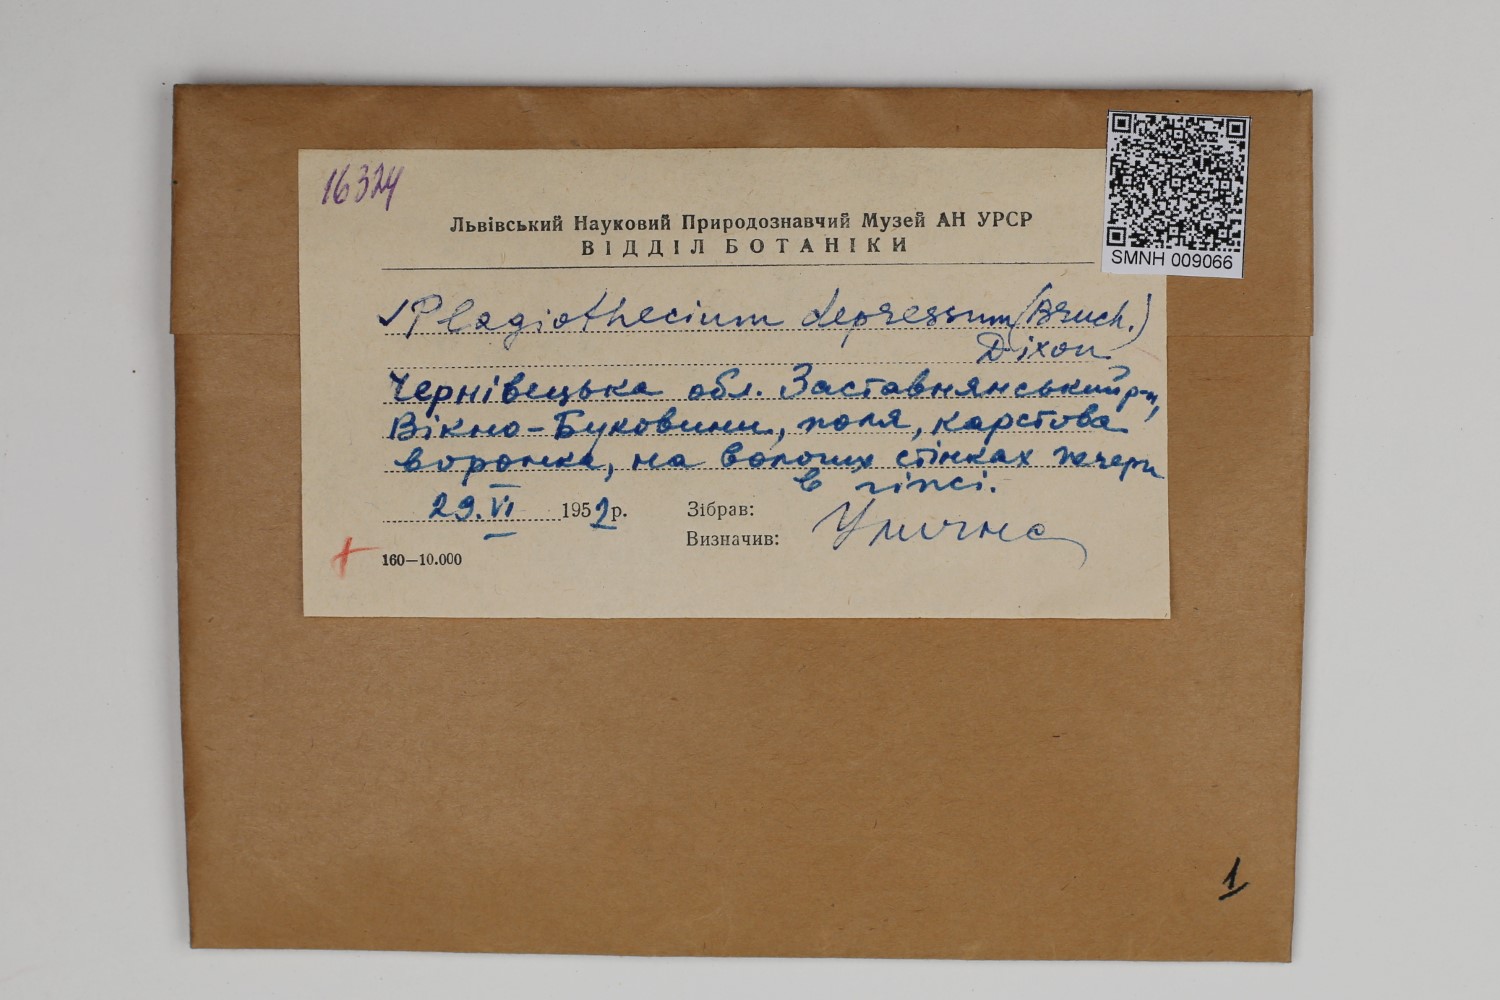 16324
Львівський Науковий Природознавчий Музей АН УРСР
ВІДДІЛ БОТАНІКИ
SMNH 009066
Plagiothecium depressum (Bruch.)
Dixon
Чернівецька обл. Заставнянський р-н,
Вікно-Буковини, поля, карстова
воронка, на вологих стінках печери
в гіпсі.
29.VI 1952р.
Зібрав:
Визначив: Улична
160—10.000
1